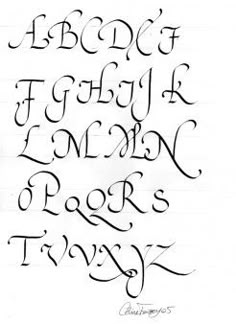 A B C D E F
F G H I J K
L M M N
O P Q Q R S
T V V X Y Z